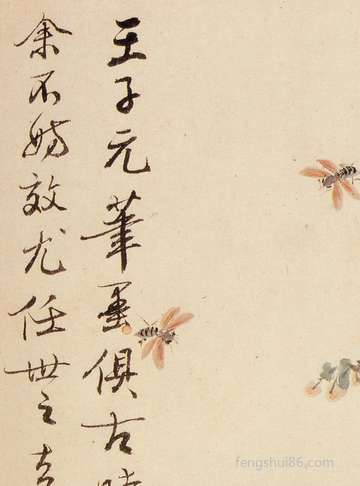 王子元筆墨俱古
余不妨效尤任世之
fengshui86.com